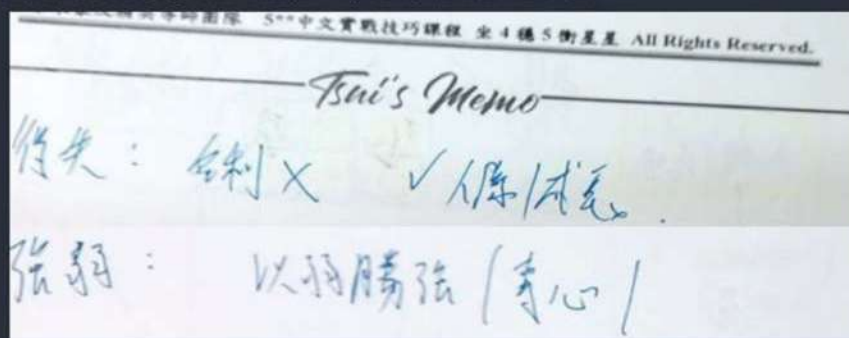 導師團隊 5**中文實戰技巧課程 坐4穩5衝星星 All Rights Reserved.
Tsui's Memo
得失: 名利 X ✓人際/成長.
強弱: 以弱勝強/專心/